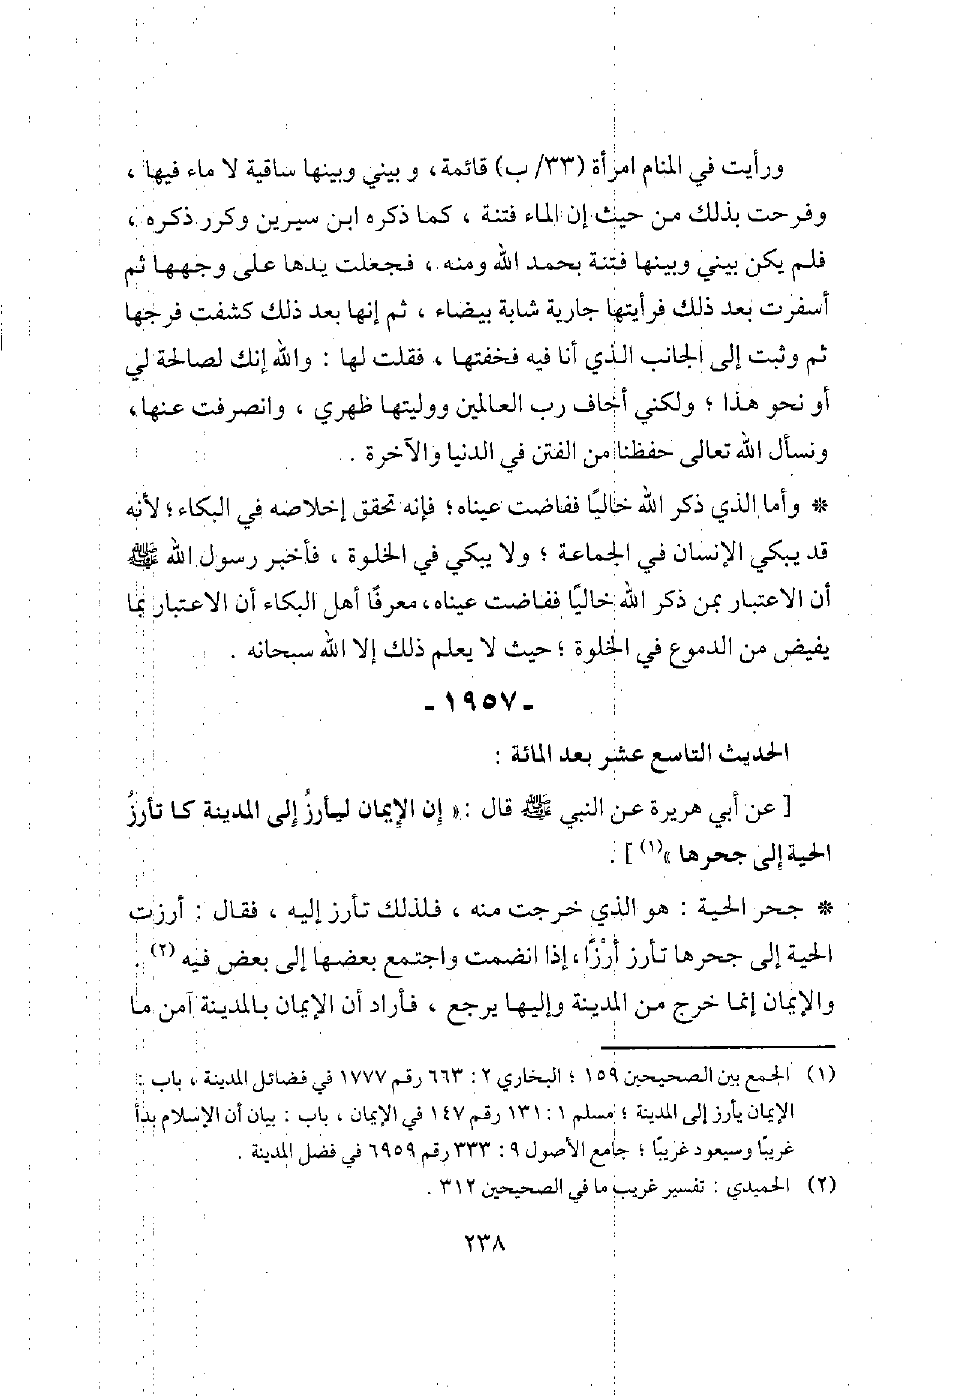 ورأيت في المنام امرأة (٣٣/ ب) قائمة، و بيني وبينها ساقية لا ماء فيها ،
وفرحت بذلك من حيث إن الماء فتنة ، كما ذكره ابن سيرين وكرر ذكره ،
فلم يكن بيني وبينها فتنة بحمد الله ومنه ، فجعلت يدها على وجهها ثم
أسفرت بعد ذلك فرأيتها جارية شابة بيضاء ، ثم إنها بعد ذلك كشفت فرجها
ثم وثبت إلى الجانب الذي أنا فيه فخفتها ، فقلت لها : والله إنك لصالحة لي
أو نحو هذا ؛ ولكني أخاف رب العالمين ووليتها ظهري ، وانصرفت عنها،
ونسأل الله تعالى حفظنا من الفتن في الدنيا والآخرة .
* وأما الذي ذكر الله خاليًا ففاضت عيناه؛ فإنه تحقق إخلاصه في البكاء؛ لأنه
قد يبكي الإنسان في الجماعة ؛ ولا يبكي في الخلوة ، فأخبر رسول الله ﷺ
أن الاعتبار بمن ذكر الله خاليًا ففاضت عيناه، معرفًا أهل البكاء أن الاعتبار بما
يفيض من الدموع في الخلوة ؛ حيث لا يعلم ذلك إلا الله سبحانه .
ـ ١٩٥٧ ـ
الحديث التاسع عشر بعد المائة :
[ عن أبي هريرة عن النبي ﷺ قال :« إن الإيمان ليأرزُ إلى المدينة كما تأرزُ
الحية إلى جحرها »(١) ] .
* جحر الحية : هو الذي خرجت منه ، فلذلك تأرز إليه ، فقال : أرزت
الحية إلى جحرها تأرز أرْزًا، إذا انضمت واجتمع بعضها إلى بعض فيه (٢) .
والإيمان إنما خرج من المدينة وإليها يرجع ، فأراد أن الإيمان بالمدينة آمن ما
(١) الجمع بين الصحيحين ١٥٩ ؛ البخاري ٢ : ٦٦٣ رقم ١٧٧٧ في فضائل المدينة ، باب :
الإيمان يأرز إلى المدينة ؛ مسلم ١ : ١٣١ رقم ١٤٧ في الإيمان ، باب : بيان أن الإسلام بدأ
غريبًا وسيعود غريبًا ؛ جامع الأصول ٩ : ٣٣٣ رقم ٦٩٥٩ في فضل المدينة .
(٢) الحميدي : تفسير غريب ما في الصحيحين ٣١٢ .
٢٣٨